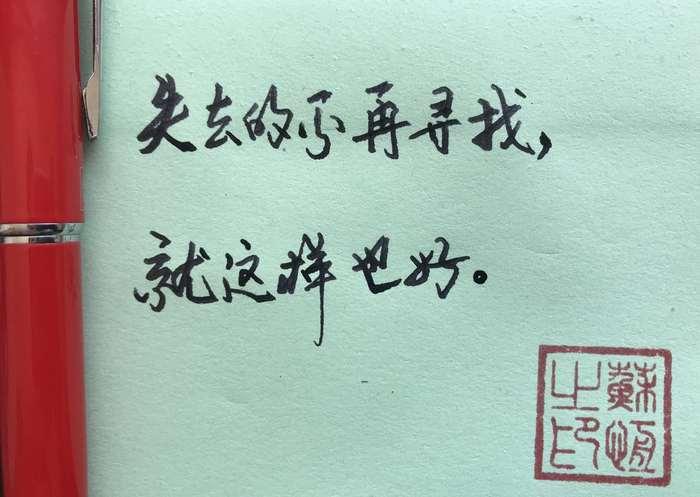 失去的不再寻找，
就这样也好。
蘇恆之印